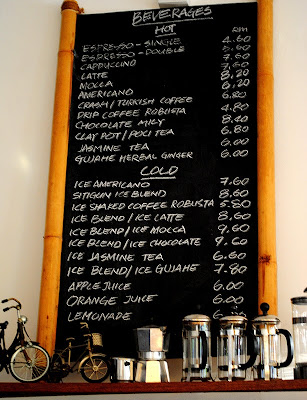 BEVERAGES
HOT RM
ESPRESSO - SINGLE 4.60
ESPRESSO - DOUBLE 5.60
CAPPUCCINO 7.60
LATTE 8.20
MOCCA 8.20
AMERICANO 6.80
CRASH / TURKISH COFFEE
DRIP COFFEE ROBUSTA 4.80
CHOCOLATE MILK 8.40
CLAY POT / POCI TEA 6.80
JASMINE TEA 6.00
GUJAHE HERBAL GINGER 6.00
COLD
ICE AMERICANO 7.60
SITIGUN ICE BLEND 8.60
ICE SHAKED COFFEE ROBUSTA 5.50
ICE BLEND / ICE LATTE 8.60
ICE BLEND / ICE MOCCA 9.60
ICE BLEND / ICE CHOCOLATE 9.60
ICE JASMINE TEA 6.60
ICE BLEND / ICE GUJAHE 7.80
APPLE JUICE 6.00
ORANGE JUICE 6.00
LEMONADE